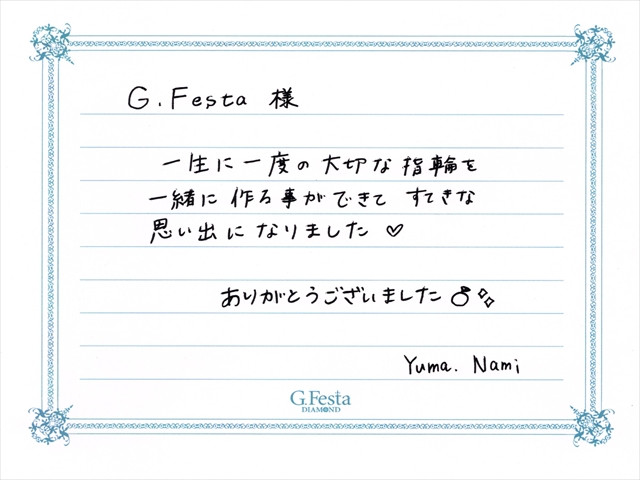 G.Festa 様
一生に一度の大切な指輪を
一緒に作る事ができて すてきな
思い出になりました♡
ありがとうございました
Yuma. Nami
G.Festa
DIAMOND